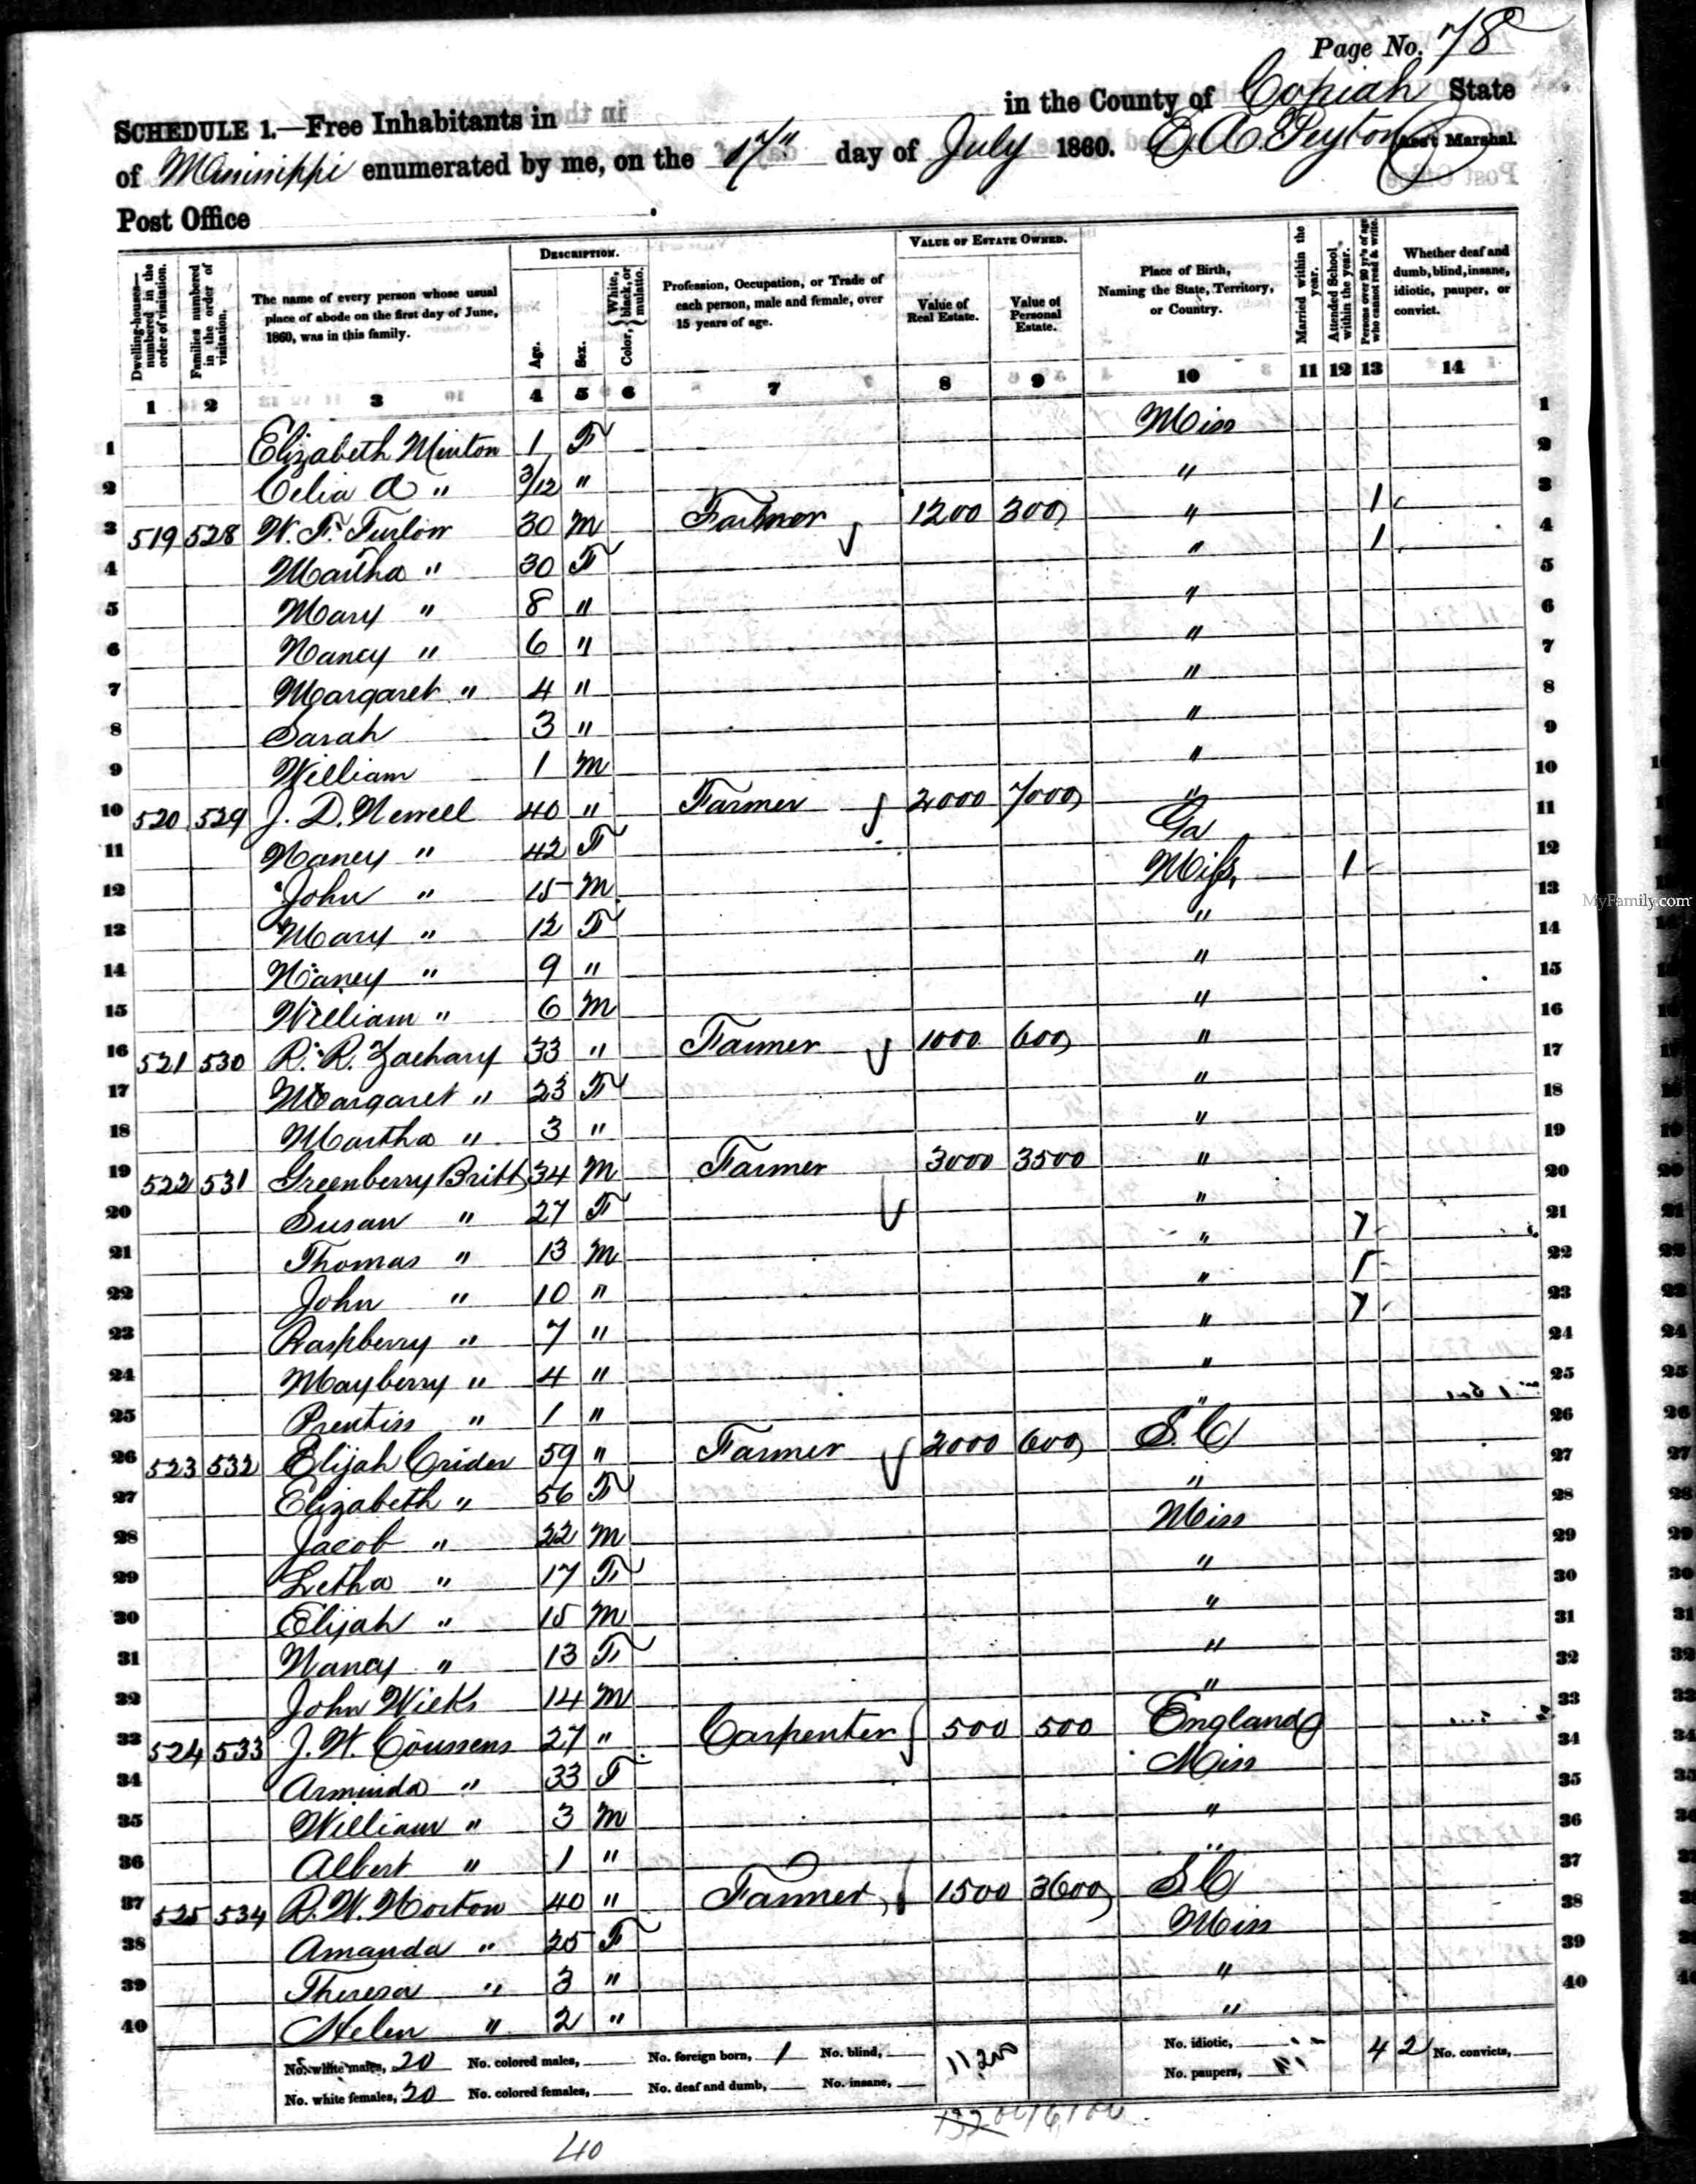 Page No. 78
SCHEDULE 1.—Free Inhabitants in in the County of Copiah State
of Mississippi enumerated by me, on the 17" day of July 1860. E. A. Peyton Ass't Marshal
Post Office
Dwelling-houses—numbered in the order of visitation.
Families numbered in the order of visitation.
The name of every person whose usual place of abode on the first day of June, 1860, was in this family.
DESCRIPTION.
Age.
Sex.
Color, { White, black, or mulatto.
Profession, Occupation, or Trade of each person, male and female, over 15 years of age.
VALUE OF ESTATE OWNED.
Value of Real Estate.
Value of Personal Estate.
Place of Birth, Naming the State, Territory, or Country.
Married within the year.
Attended School within the year.
Persons over 20 y'rs of age who cannot read & write.
Whether deaf and dumb, blind, insane, idiotic, pauper, or convict.
1 2 3 4 5 6 7 8 9 10 11 12 13 14
1 Elizabeth Minton 1 F Miss 1
2 Celia A " 3/12 " " 2
3 519 528 W. F. Furlow 30 M Farmer 1200 300 " 1 3
4 Martha " 30 F " 1 4
5 Mary " 8 " " 5
6 Nancy " 6 " " 6
7 Margaret " 4 " " 7
8 Sarah 3 " " 8
9 William 1 M " 9
10 520 529 J. D. Newell 40 " Farmer 2000 7000 " 10
11 Nancy " 42 F Ga 11
12 John " 15 M Miss, 1 12
13 Mary " 12 F " 13
14 Nancy " 9 " " 14
15 William " 6 M " 15
16 521 530 R. R. Zachary 33 " Farmer 1000 600 " 16
17 Margaret " 23 F " 17
18 Martha " 3 " " 18
19 522 531 Greenberry Britt 34 M Farmer 3000 3500 " 19
20 Susan " 27 F " 20
21 Thomas " 13 M " 1 21
22 John " 10 " " 1 22
23 Raspberry " 7 " " 1 23
24 Mayberry " 4 " " 24
25 Prentiss " 1 " " 25
26 523 532 Elijah Crider 59 " Farmer 2000 600 S. C 26
27 Elizabeth " 56 F " 27
28 Jacob " 22 M Miss 28
29 Letha " 17 F " 29
30 Elijah " 15 M " 30
31 Nancy " 13 F " 31
32 John Wicks 14 M " 32
33 524 533 J. W. Coussens 27 " Carpenter 500 500 England 33
34 Arminda " 33 F Miss 34
35 William " 3 M " 35
36 Albert " 1 " " 36
37 525 534 R. W. Norton 40 " Farmer 1500 3600 S. C 37
38 Amanda " 25 F Miss 38
39 Theresa " 3 " " 39
40 Helen " 2 " " 40
No. white males, 20 No. colored males, No. foreign born, 1 No. blind, 11200 No. idiotic, 4 2 No. convicts,
No. white females, 20 No. colored females, No. deaf and dumb, No. insane, No. paupers,
16100
40
MyFamily.com